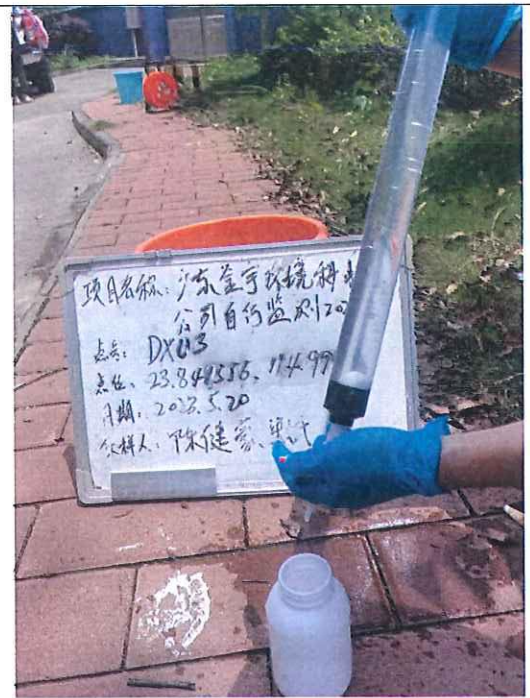 项目名称：广东金宇环境科
公司自行监测(20
点号：DXU3
点位：23.848556，114.99
日期：2023.5.20
采样人：陈健